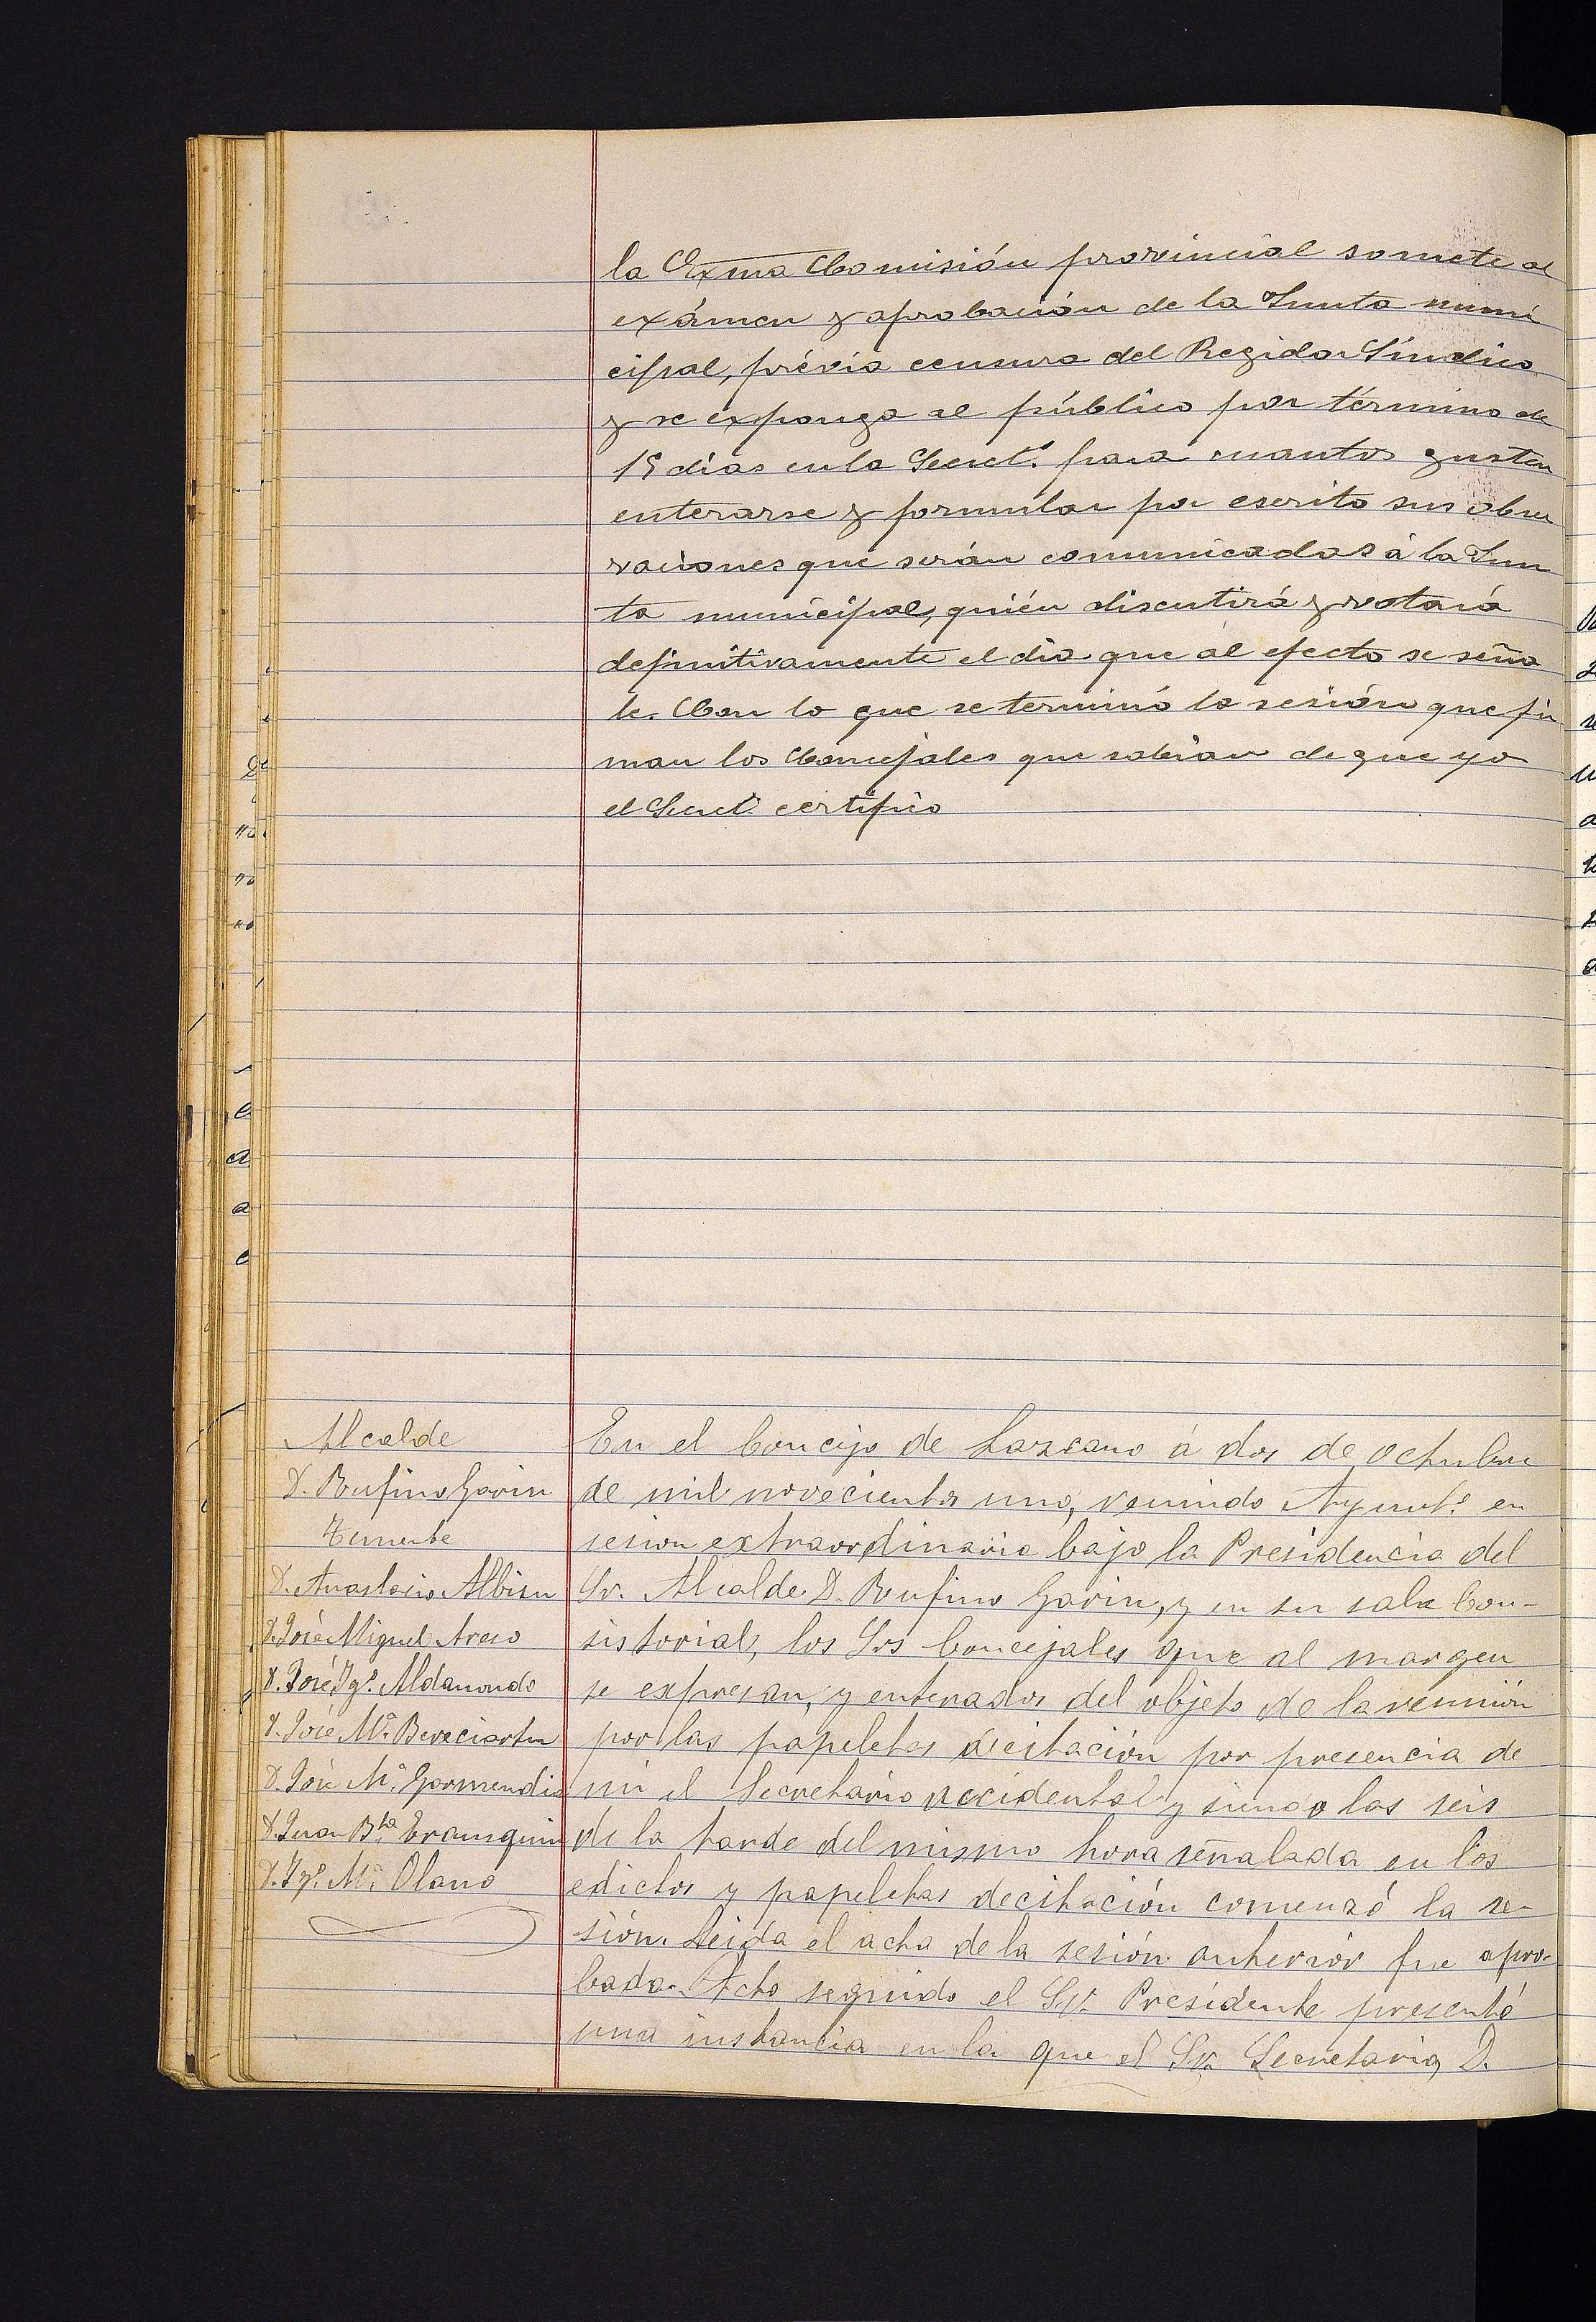 la Exma Comisión provincial somete al
exámen y aprobación de la Junta muni
cipal, prévia censura del Regidor Síndico
y se exponga al público por término de
15 dias en la Secret.ª para cuantos gusten
enterarse y formular por escrito sus obser
vaciones que serán comunicadas á la Jun
ta municipal, quién discutirá y votará
definitivamente el dia que al efecto se seña
le. Con lo que se terminó la sesión que fir
man los Concejales que sabian de que yo
el Secret.º certifico
Alcalde
D. Rufino Garin
Teniente
D. Anastasio Albisu
D. José Miguel Areso
D. José Ig.º Aldanondo
D. José M.ª Bereciartu
D. José M.ª Garmendia
D. Juan B.ta Eraunquin
D. Ig.º M.ª Olano
En el Concejo de Lazcano á dos de octubre
de mil novecientos uno, reunido Ayunt.º en
sesion extraordinaria bajo la Presidencia del
Sr. Alcalde D. Rufino Garin, y en su sala Con-
sistorial, los Srs Concejales que al margen
se expresan, y enterados del objeto de la reunión
por las papeletas de citación por presencia de
mi el Secretario accidental y siendo las seis
de la tarde del mismo hora señalada en los
edictos y papeletas de citación comenzó la se-
sión. Leida el acta de la sesión anterior fue apro-
bada. Acto seguido el Sr. Presidente presentó
una instancia en la que el Sr. Secretario, D.